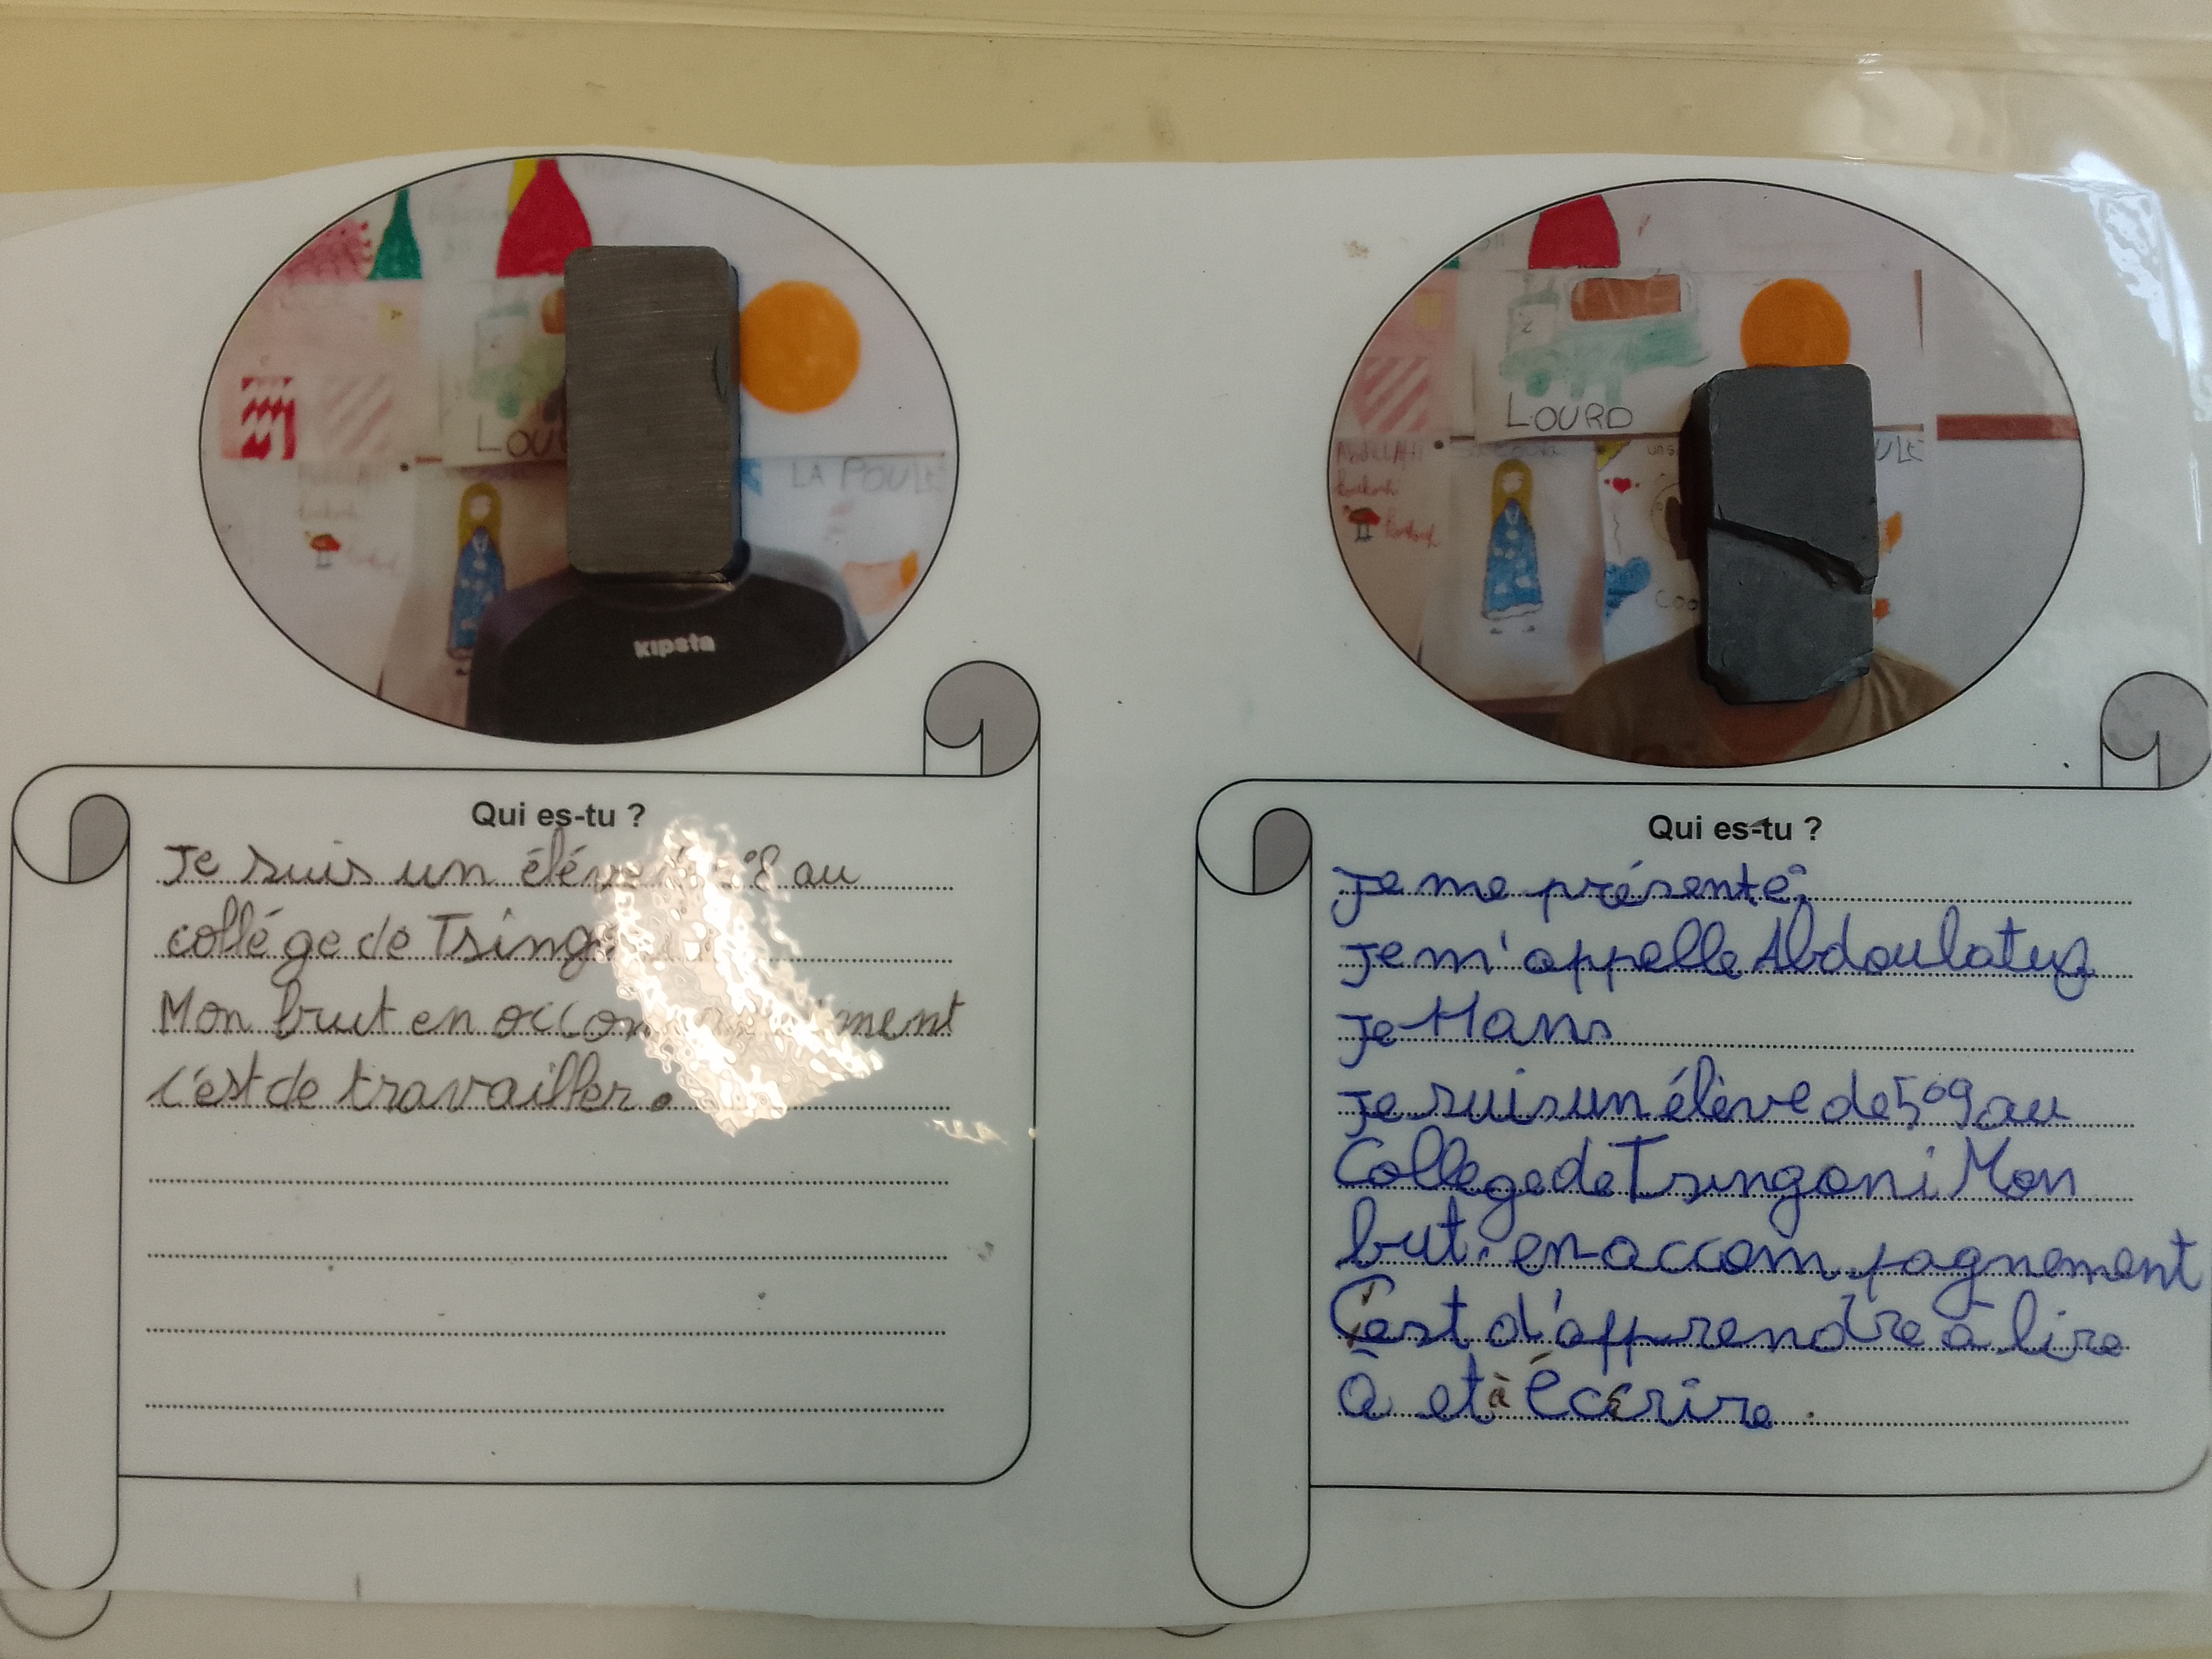 LOU
LA POULE
kipsta
Qui es-tu ?
Je suis un élév °8 au
collége de Tsing
Mon brut en accom ment
c'est de travailler.
LOURD
ULE
COO
Qui es-tu ?
Je me présente :
Je m'appelle
Je Hans
Je suis un élève de 5°9 au
College de Tsingoni Mon
but en accompagnement
C'est d'apprendre à lire
à et à Écérire.